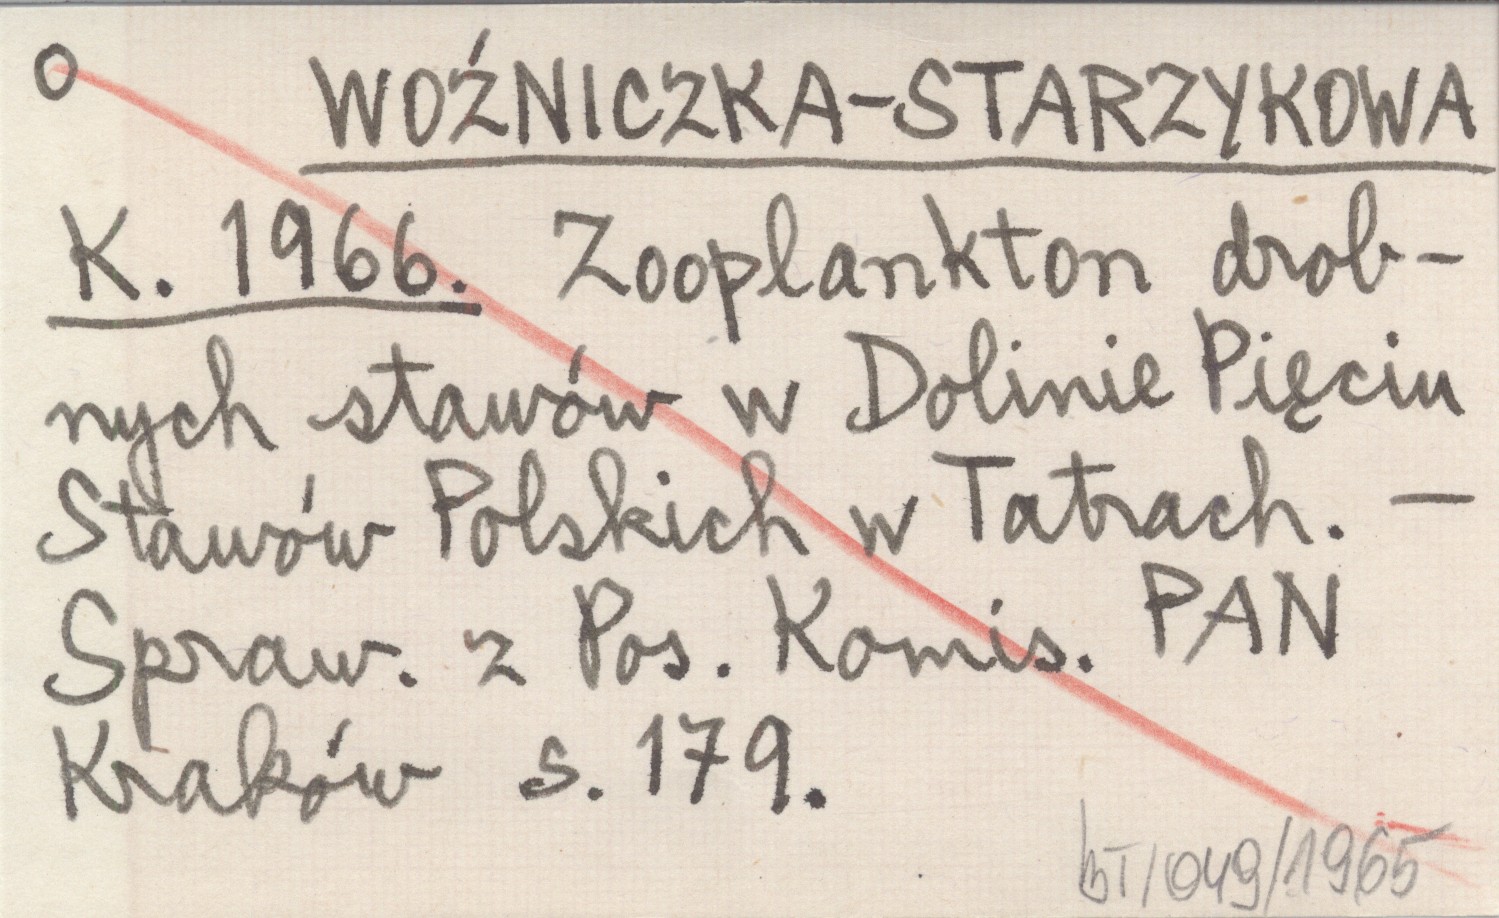 O WOŹNICZKA-STARZYKOWA
K. 1966. Zooplankton drob-
nych stawów w Dolinie Pięciu
Stawów Polskich w Tatrach. —
Spraw. z Pos. Komis. PAN
Kraków s. 179.
bT/049/1965